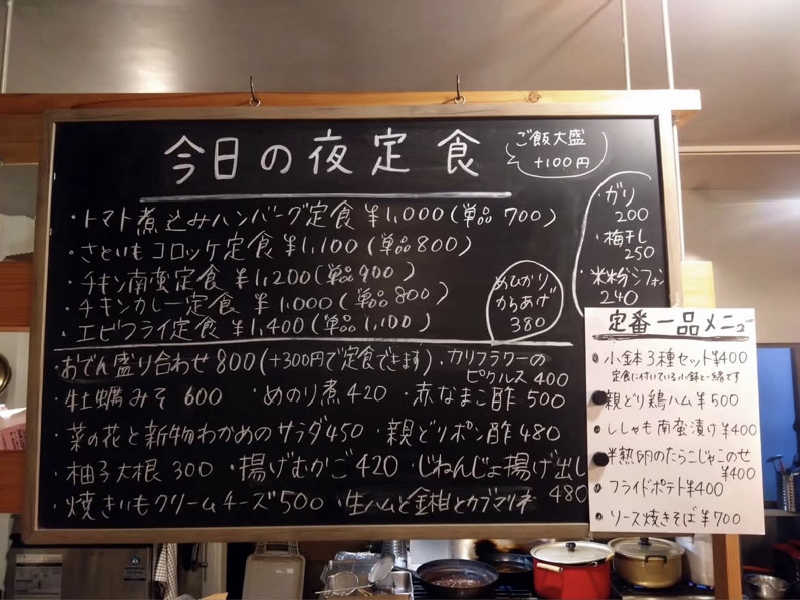 今日の夜定食
ご飯大盛
+100円
・トマト煮込みハンバーグ定食 ¥1,000(単品 700)
・さといもコロッケ定食 ¥1,100(単品800)
・チキン南蛮定食 ¥1,200(単品900)
・チキンカレー定食 ¥1,000(単品800)
・エビフライ定食 ¥1,400(単品1,100)
・ガリ
200
・梅干し
250
・米粉シフォン
240
めひかり
からあげ
380
・おでん盛り合わせ 800(+300円で定食できます)
・カリフラワーの
ピクルス 400
・牡蠣みそ 600
・めのり煮 420
・赤なまこ酢 500
・菜の花と新物わかめのサラダ450
・親どりポン酢 480
・柚子大根 300
・揚げむかご 420
・じねんじょ揚げ出し
480
・焼きいもクリームチーズ500
・生ハムと金柑とカブマリネ
定番一品メニュー
小鉢3種セット¥400
定食に付いている小鉢と一緒です
親どり鶏ハム¥500
ししゃも南蛮漬け¥400
半熟卵のたらこじゃこのせ
¥400
フライドポテト¥400
ソース焼きそば¥700